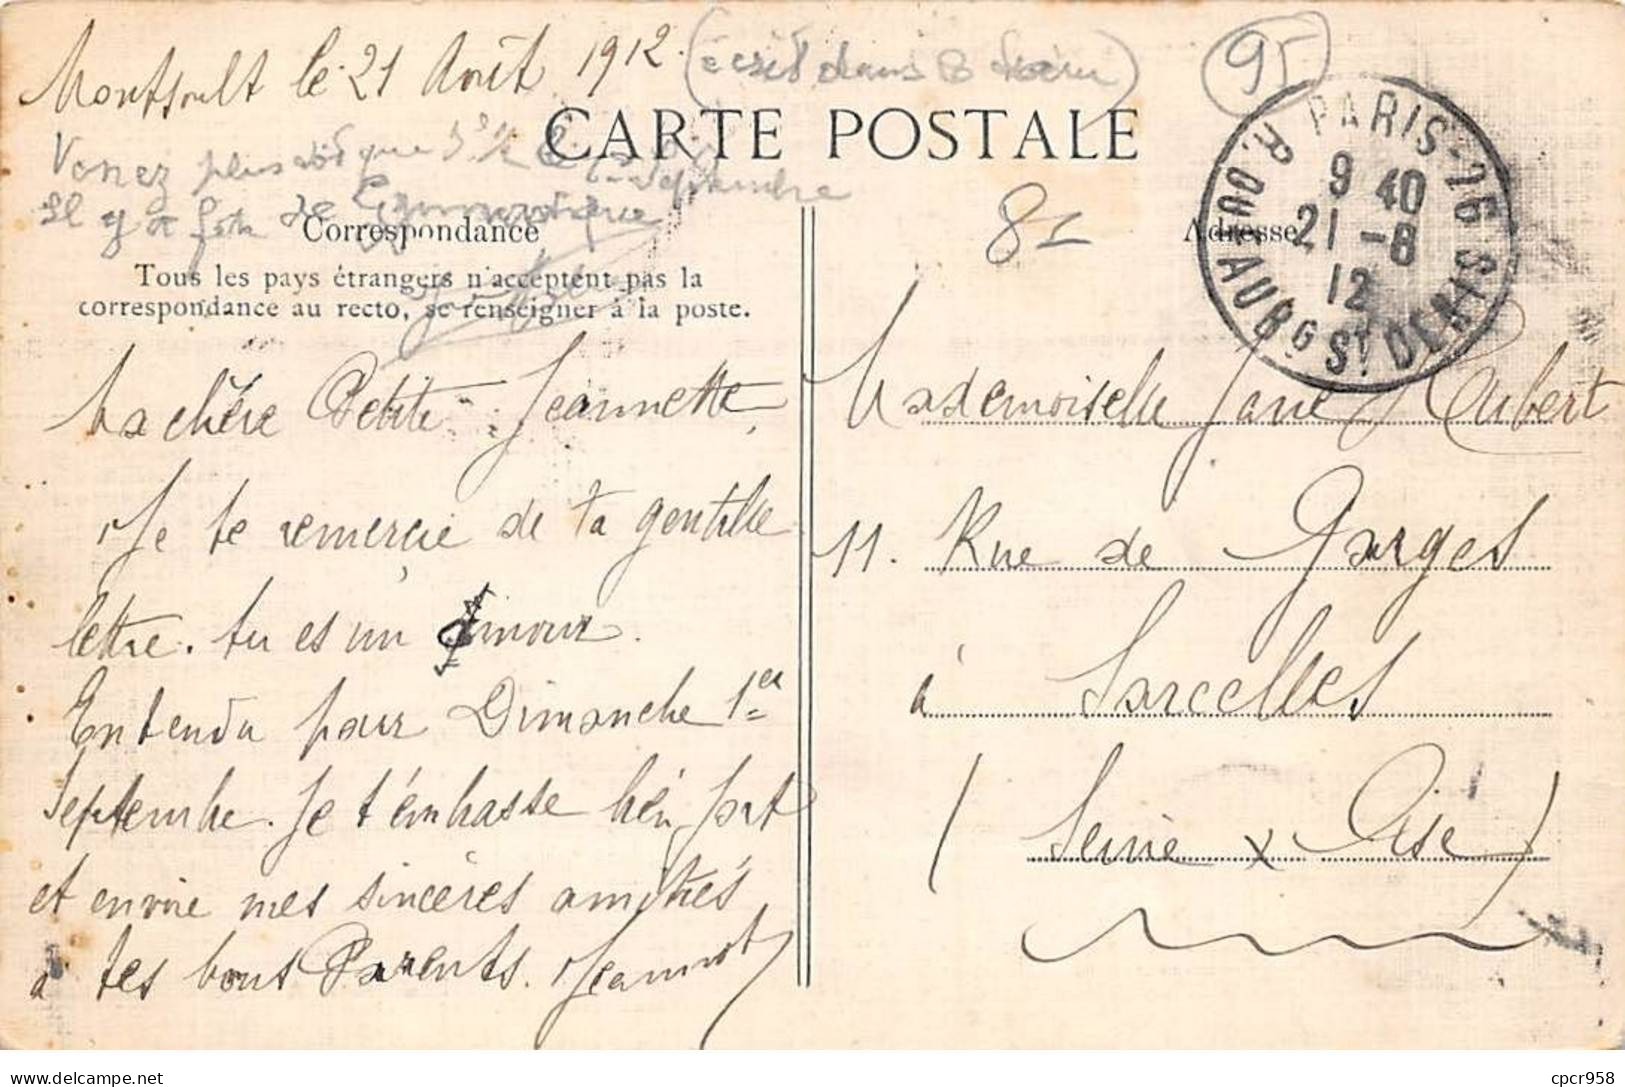 Montsoult le 21 Août 1912. (écrit dans
95
CARTE POSTALE
Venez plus tôt que
Septembre
Il y a fête de Gymnastique
81
Correspondance
Adresse
Tous les pays étrangers n'acceptent pas la
correspondance au recto, se renseigner à la poste.
PARIS-16 R. DU FAUBG ST DENIS
9 40
21 -8
12
Ma chère Petite Jeannette,
Je te remercie de ta gentille
lettre. tu es un amour.
Entendu pour Dimanche 1er
Septembre. Je t'embrasse bien fort
et envoie mes sincères amitiés
à tes bons Parents. Jeannot
Mademoiselle Jane Hubert
11. Rue de Garges
à Sarcelles
(Seine x Oise)
delcampe.net
cpcr958